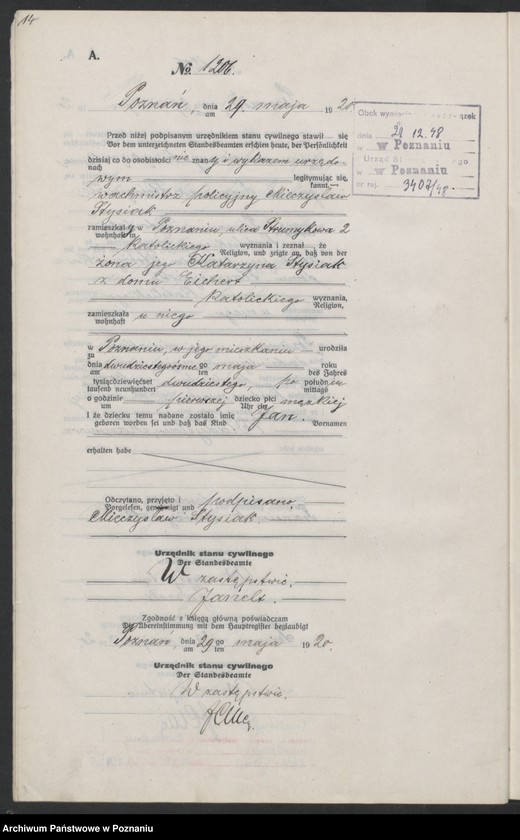 14
A.
No. 1206.
Poznań, dnia 29. maja 1920
am
Obok wymie
dnia 29 12.48
w Poznaniu
Urząd
w Poznaniu
nr rej. 3407/48.
Przed niżej podpisanym urzędnikiem stanu cywilnego stawił się
Vor dem unterzeichneten Standesbeamten erschien heute, der Persönlichkeit
dzisiaj co do osobistości
nach
wym legitymując się,
kannt,
wachmistrz policyjny Mieczysław
Stysiak
zamieszkały w Poznaniu, ulica Strumykowa 2
wohnhaft in
katolickiego wyznania i zeznał, że
Religion, und zeigte an, daß von der
żona jego Katarzyna Stysiak
z domu Eichert
katolickiego wyznania,
Religion,
zamieszkała u niego
wohnhaft
w Poznaniu, w jego mieszkaniu urodziła
zu
dnia dwudziestego go maja roku
am ten des Jahres
tysiącdziewięćset dwudziestego, po południu
tausend neunhundert mittags
o godzinie pierwszej dziecko płci męzkiej
um Uhr ein
i że dziecku temu nadane zostało imię Jan.
geboren worden sei und daß das Kind Vornamen
erhalten habe
Odczytano, przyjęto i podpisano,
Vorgelesen, genehmigt und
Mieczysław Stysiak.
Urzędnik stanu cywilnego
Der Standesbeamte
W zastępstwie.
Zgodność z księgą główną poświadczam
Die Übereinstimmung mit dem Hauptregister beglaubigt
Poznań, dnia 29 go maja 1920.
am ten
Urzędnik stanu cywilnego
Der Standesbeamte
W zastępstwie.
Archiwum Państwowe w Poznaniu